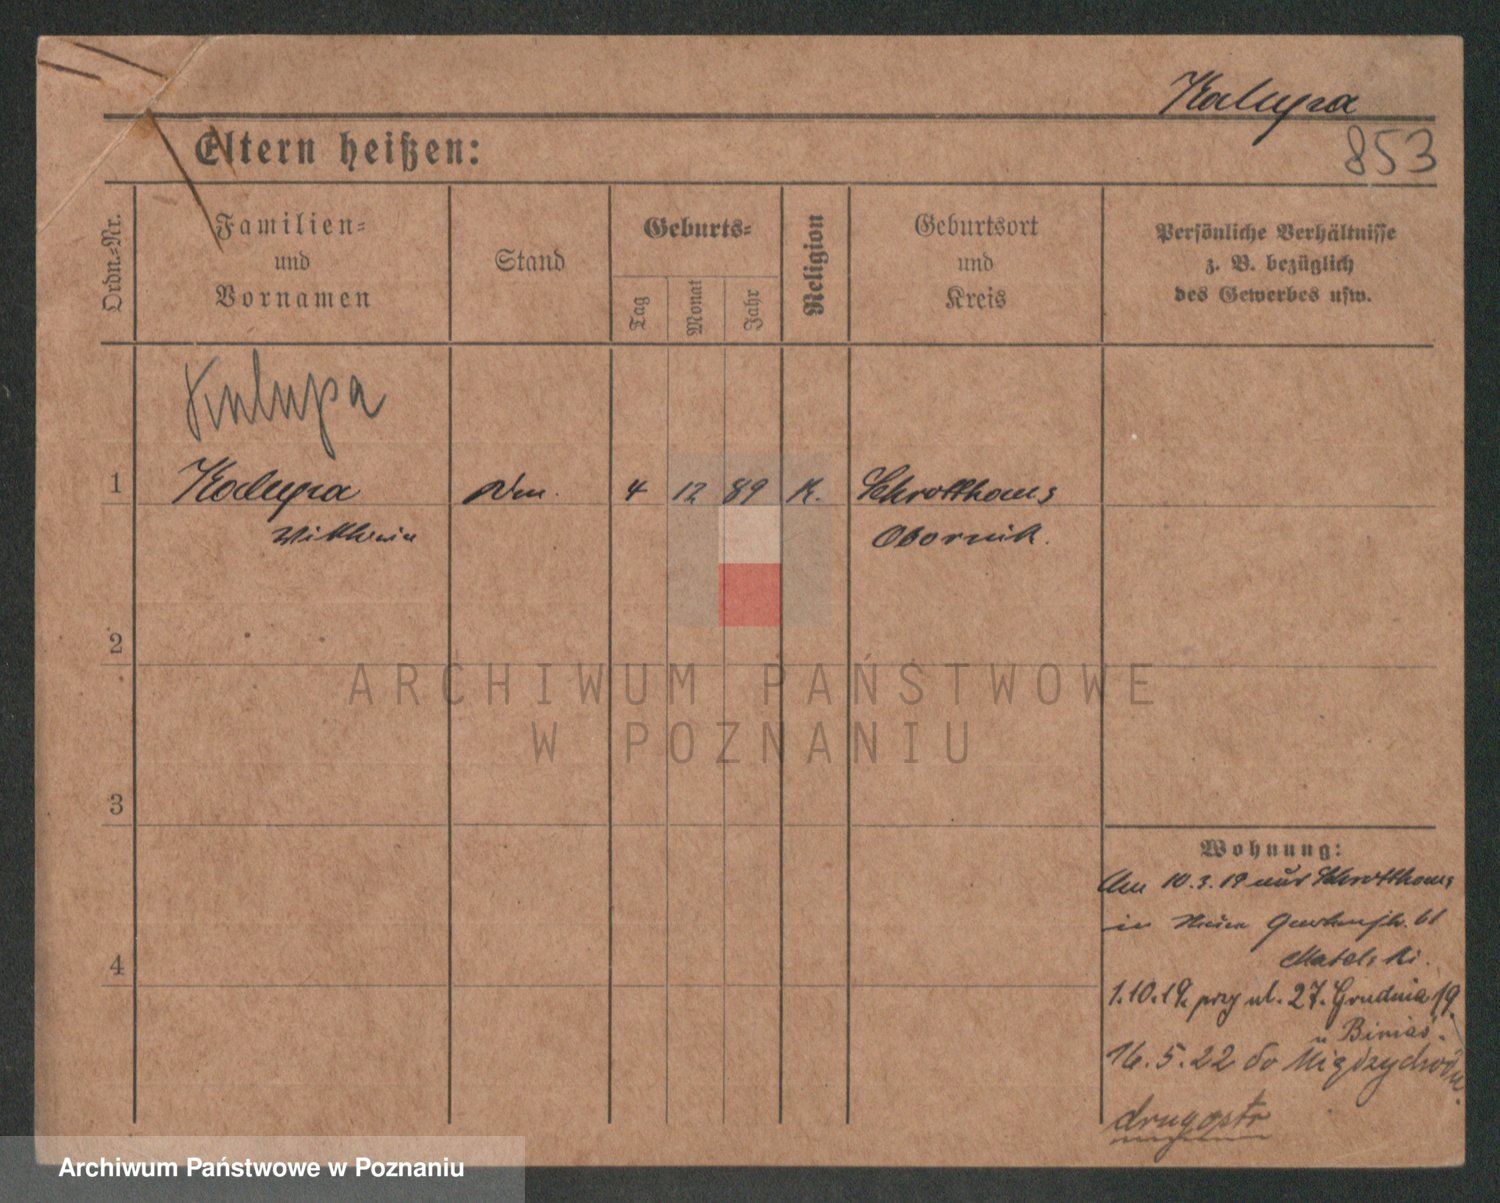 Kalupa
853
Eltern heißen:
Ordn.-Nr.
Familien-
und
Vornamen
Stand
Geburts-
Tag
Monat
Jahr
Religion
Geburtsort
und
Kreis
Persönliche Verhältnisse
z. B. bezüglich
des Gewerbes usw.
Kalupa
1
Kalupa
4 12 89 K.
Schrotthaus
Obornik.
2
ARCHIWUM PAŃSTWOWE
W POZNANIU
3
Wohnung:
Am 10.3.19 aus Schrotthaus
in 61
Matelski.
4
1.10.19. przy ul. 27. Grudnia 19.
u Binias.
16.5.22 do Międzychodu.
drugostr
Archiwum Państwowe w Poznaniu